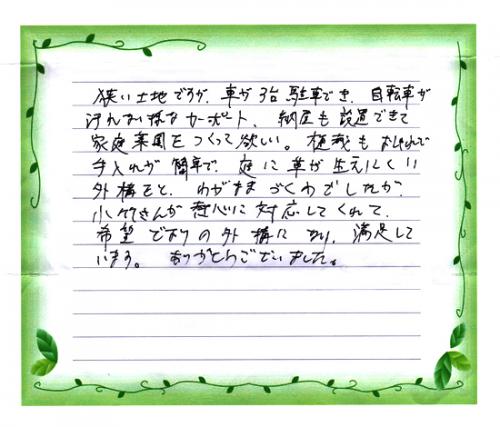 狭い土地ですが、車が3台駐車でき、自転車が
汚れない様なカーポート、納屋も設置できて
家庭菜園をつくって欲しい。植栽もおしゃれで
手入れが簡単で、庭に草が生えにくい
外構をと、わがままづくめでしたが、
小竹さんが熱心に対応してくれて、
希望どおりの外構になり、満足して
います。ありがとうございました。